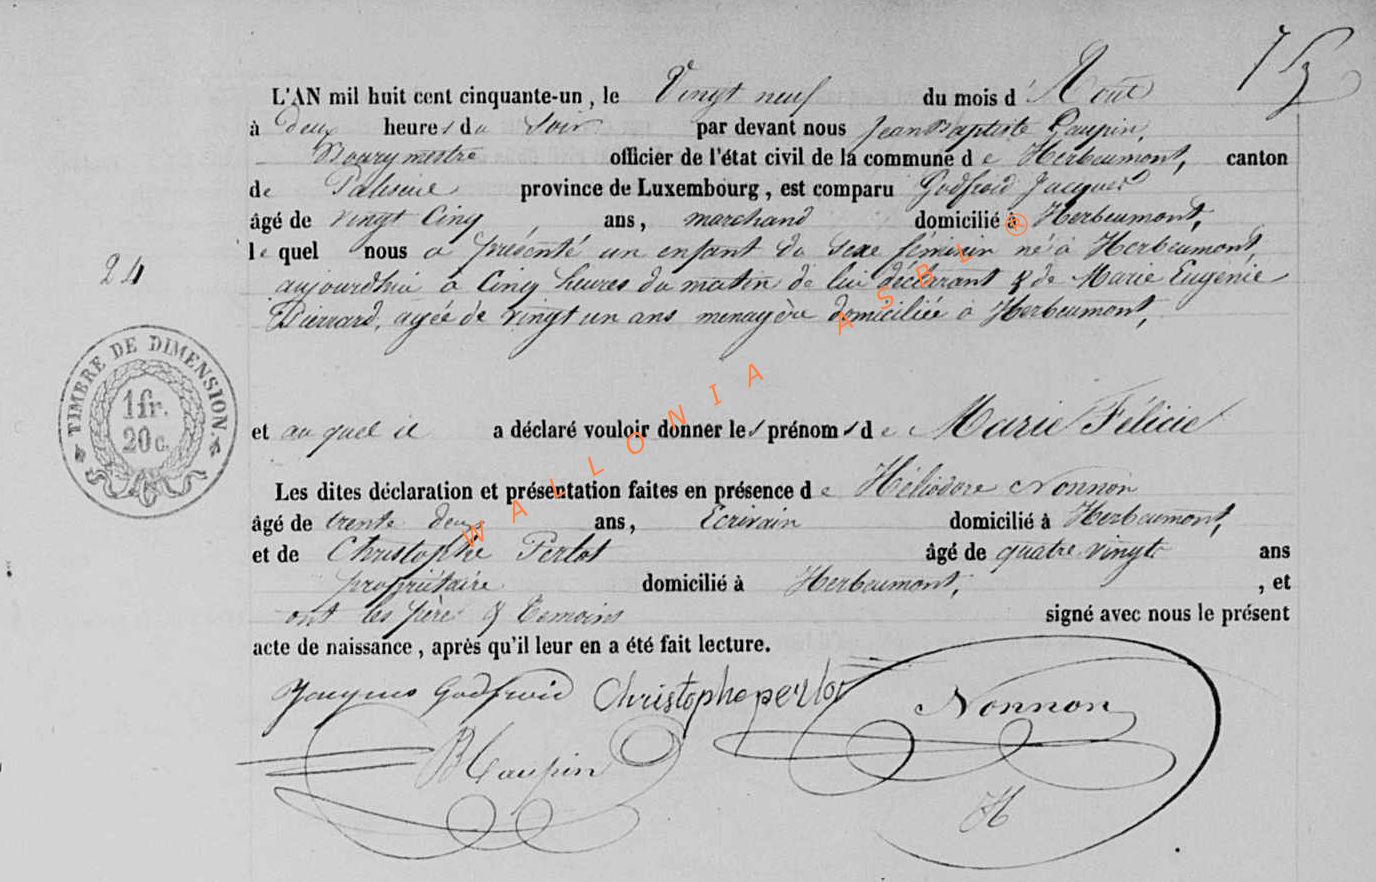 L'AN mil huit cent cinquante-un, le Vingt neuf du mois d'Aout
à deux heures du Soir par devant nous Jean Baptiste Paupin,
Bourgmestre officier de l'état civil de la commune de Herbeumont, canton
de Paliseul province de Luxembourg, est comparu Godfroid Jacques
âgé de vingt Cinq ans, marchand domicilié à Herbeumont,
lequel nous a présenté un enfant du sexe féminin né à Herbeumont,
24
aujourdhui à Cinq heures du matin de lui déclarant & de Marie Eugenie
agée de vingt un ans menagère domiciliée à Herbeumont,
TIMBRE DE DIMENSION
1 fr.
20 c.
et auquel il a déclaré vouloir donner les prénoms de Marie Félicie
Les dites déclaration et présentation faites en présence de Héliodore Nonnon
âgé de trente deux ans, Ecrivain domicilié à Herbeumont,
et de Christophe Perlot âgé de quatre vingts ans
propriétaire domicilié à Herbeumont, , et
ont les père & temoins signé avec nous le présent
acte de naissance, après qu'il leur en a été fait lecture.
Jacques Godfroid Christophe perlot Nonnon
Paupin
H
WALLONIA ASBL ®